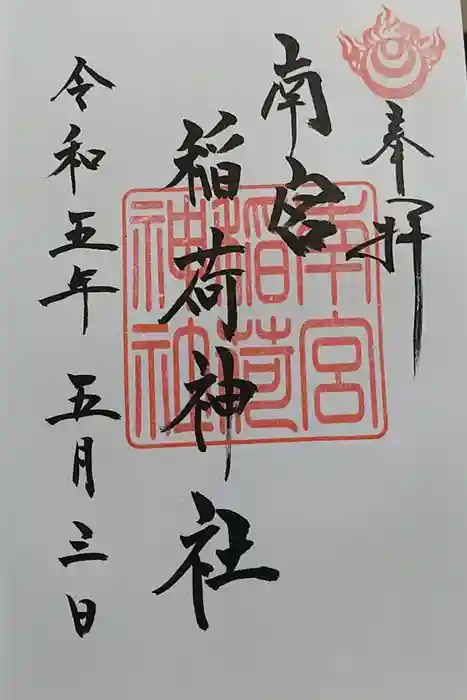 奉拝
南宮
稲荷神社
令和五年五月三日
南宮
稲荷
神社